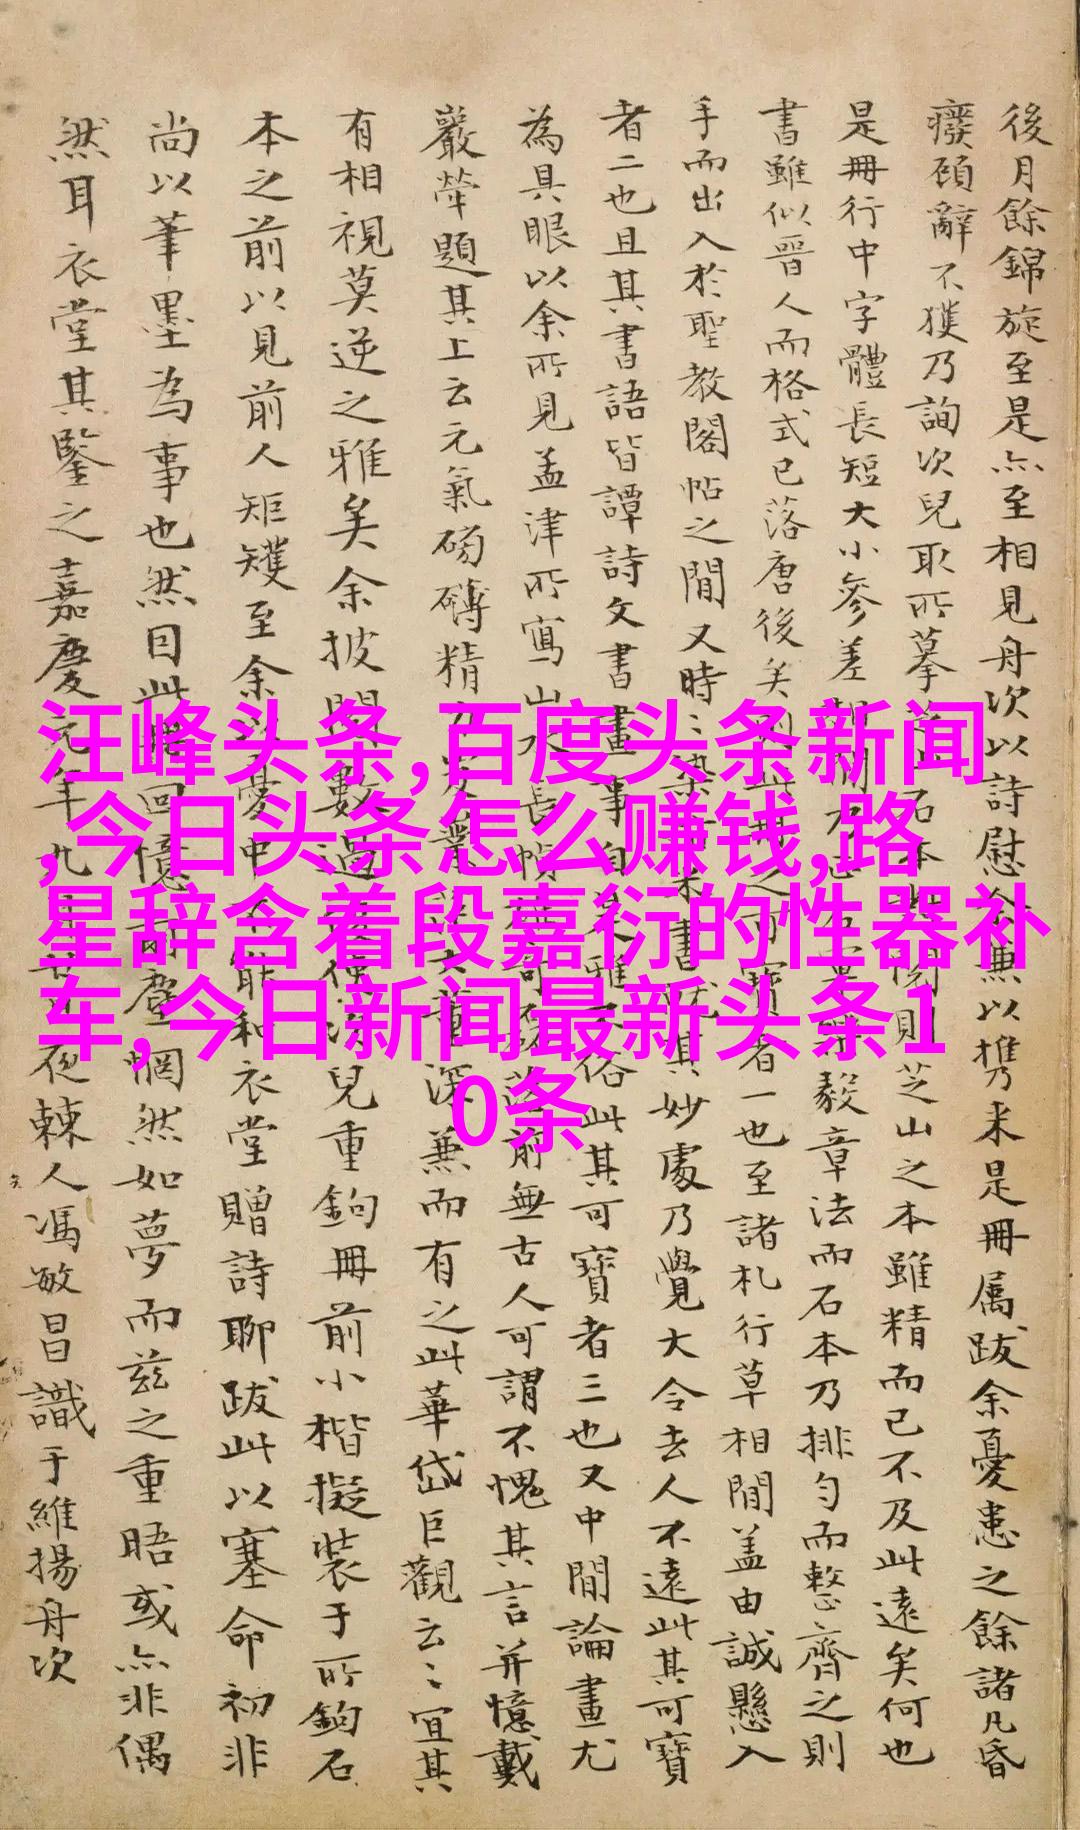 後月餘錦旋至是亦至相見舟次以詩慰余兼以攜来是冊属跋余憂患之餘諸凡昏
癈頋辭不獲乃詢次兒取所摹
石本
閱則芝山之本雖精而已不及此遠矣何也
是冊行中字體長短大小參差
毅章法而石本乃排勻而整齊之則
書雖似晋人而格式已落唐後矣
此冊之可寶者一也至諸札行草相間盖由誠懸入
手而出入於聖教閣帖之間又時〻染
書
其妙處乃覺大令去人不遠此其可寶
者二也且其書語皆譚詩文書畫事自
雅不俗此其可寶者三也又中間論畫尤
為具眼以余所見孟津所寫山水長幀
前無古人可謂不愧其言并憶戴
巖犖題其上云元氣磅礴精力
深兼而有之此華岱巨觀云〻宜其
有相視莫逆之雅矣余披閱數過
次兒重鉤冊前小楷擬裝于所鉤石
本之前以見前人矩矱至余以憂中不能和衣堂贈詩聊跋此以塞命初非
尚以筆墨為事也然因此
回憶前塵惘然如夢而兹之重晤或亦非偶
然耳衣堂其鑒之嘉慶元年九月
夜棘人馮敏昌識于維揚舟次
汪峰头条,百度头条新闻
,今日头条怎么赚钱,路
星辞含着段嘉衍的性器补
车,今日新闻最新头条1
0条